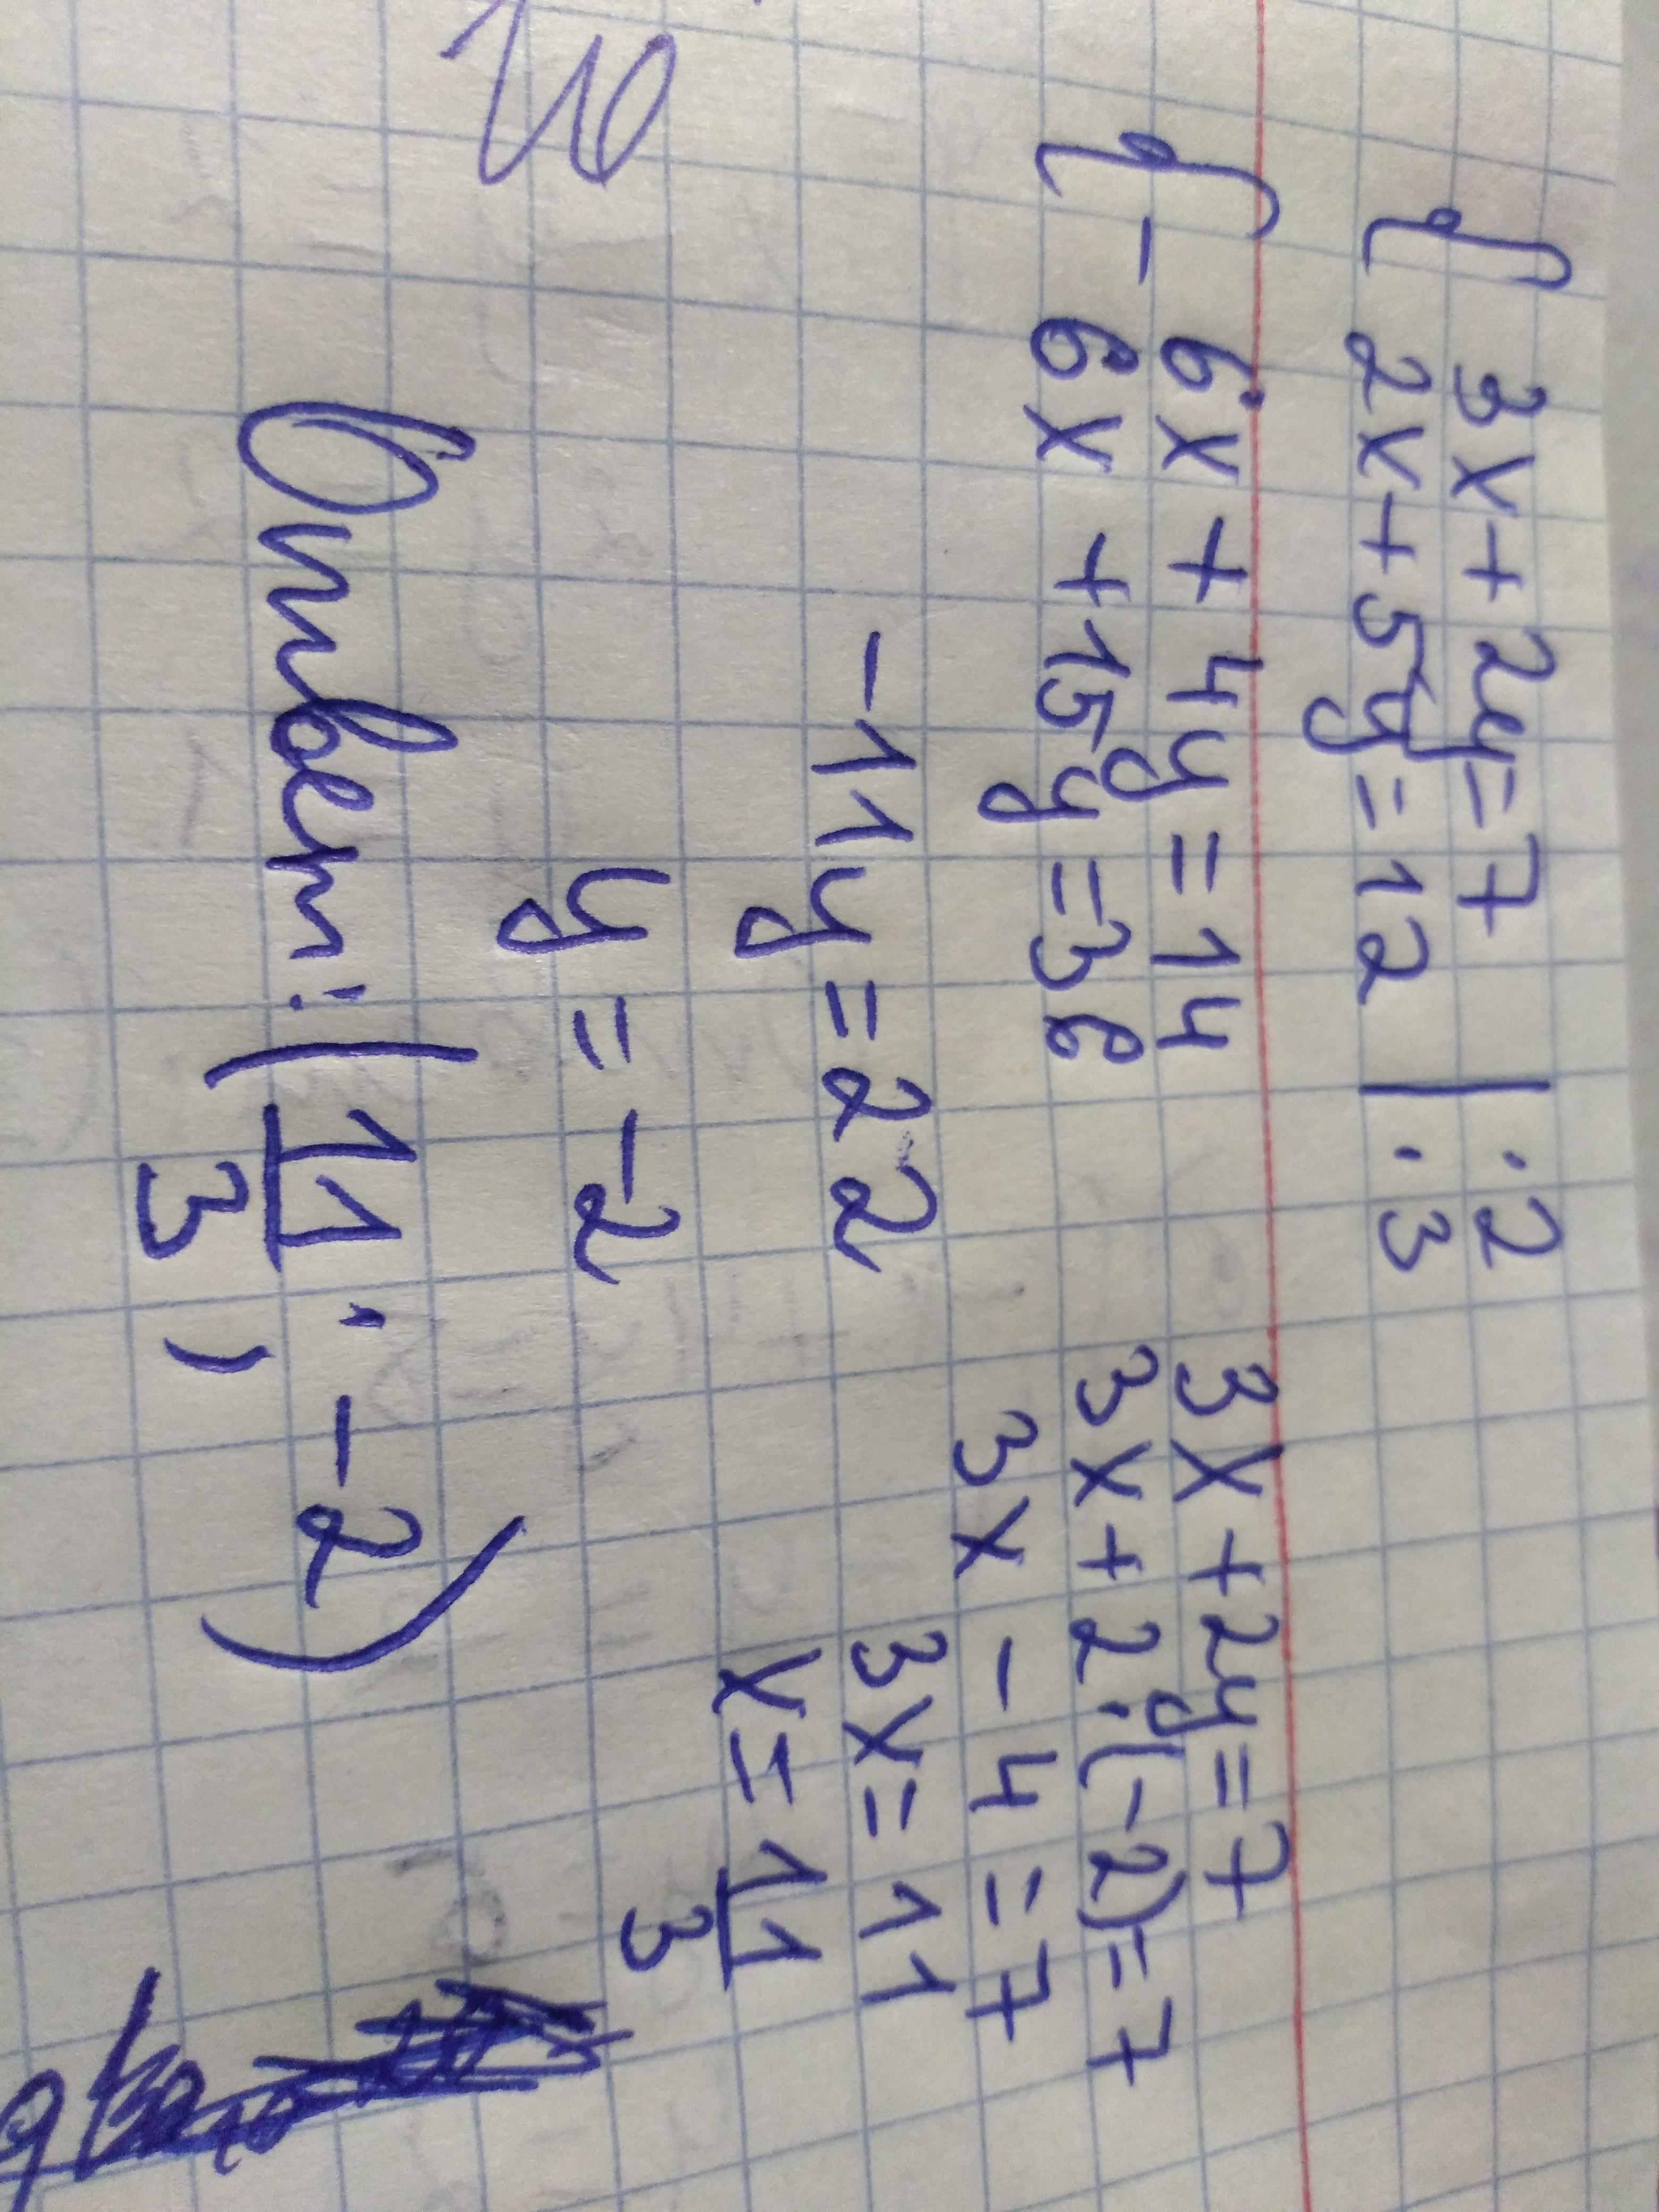 { 3x+2y=7 | ·2
2x+5y=12 | ·3
{ - 6x + 4y = 14
6x + 15y = 36
-11y = 22
y = -2
3x + 2y = 7
3x + 2·(-2) = 7
3x - 4 = 7
3x = 11
x = 11/3
Ответ: (11/3; -2)